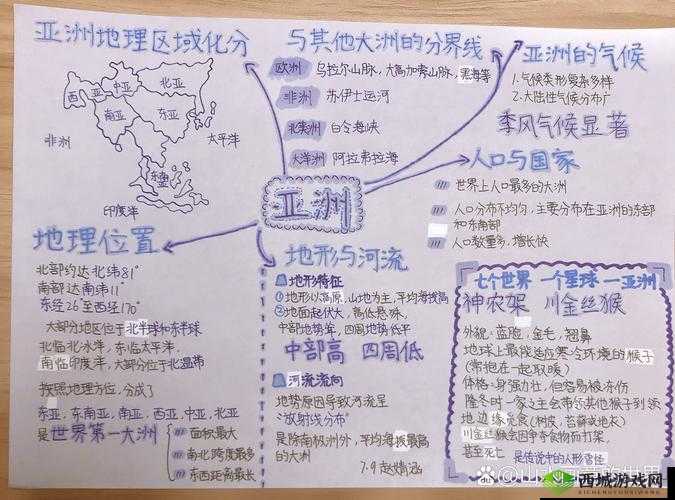 亚洲地理区域化分
北亚
中亚
西亚
南亚
东亚
东南亚
非洲
太平洋
印度洋
与其他大洲的分界线
欧洲 乌拉尔山脉，大高加索山脉，黑海等
非洲 苏伊士运河
北美洲 白令海峡
大洋洲 阿拉弗拉海
亚洲的气候
1.气候类形复杂多样
2.大陆性气候分布广
季风气候显著
人口与国家
世界上人口最多的大洲
人口分布不均匀，主要分布在亚洲的东部
和东南部
人口数量多，增长快
亚洲
地理位置
北部约达北纬81°
南部达南纬11°
东经26°至西经170°
大部分地区位于北半球和东半球
北临北冰洋，东临太平洋，
南临印度洋，大部分位于北温带
按照地理方位，分成了
东亚，东南亚，南亚，西亚，中亚，北亚
是世界第一大洲
面积最大
南北跨度最多
东西距离最长
地形与河流
地形特征
①地形以高原，山地为主，平均海拔高
②地面起伏大，高低悬殊，
中部地势高，四周地势低平
中部高 四周低
河流流向
地势原因导致河流呈
“放射线分布”
是除南极洲外，平均海拔最高
的大洲
7.9 赵婧涵
七个世界 一个星球 一亚洲
神农架 川金丝猴
外貌：蓝脸，金毛，翘鼻
地球上最能适应寒冷环境的猴子
（常抱在一起取暖）
体格：身强力壮，但容易被冻伤
隆冬时一家之主会带领其他猴子到领
地边缘觅食（树皮，苔藓或地衣）
川金丝猴会因争夺食物而打架，
甚至死亡
是传说中的人形害怪
西城游戏网